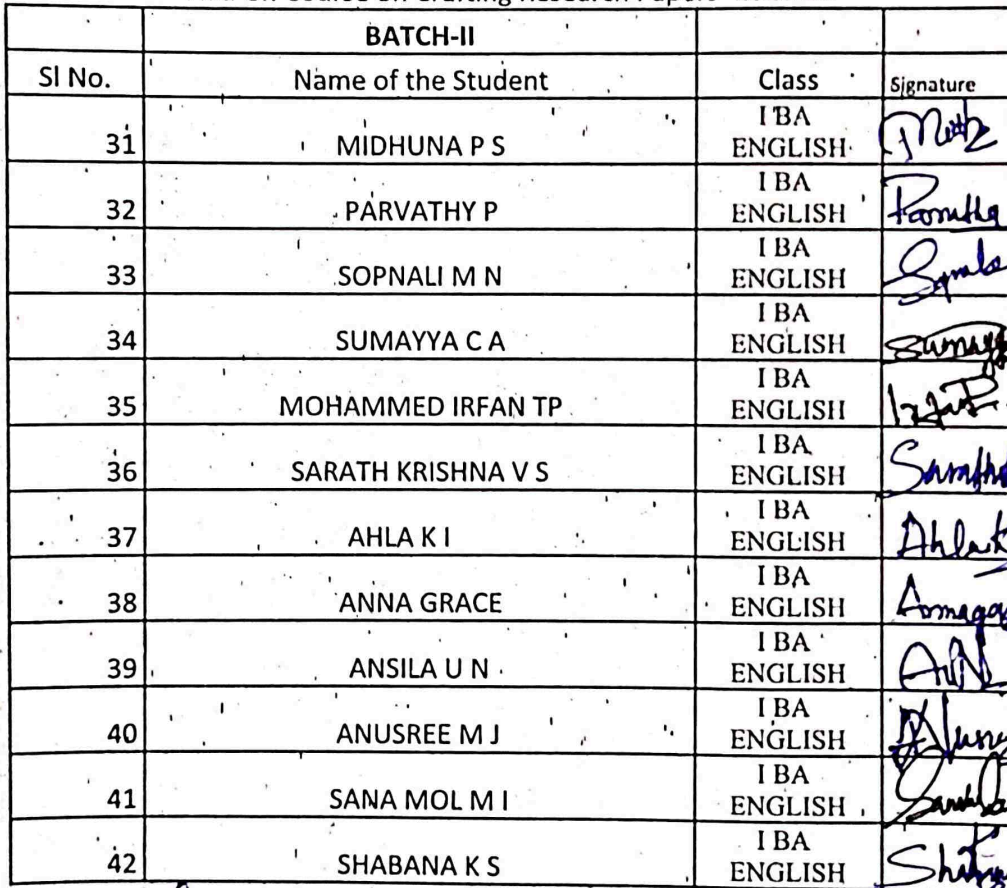 on Course on Crafting Research Papers
BATCH-II
Sl No. Name of the Student Class Signature
31 MIDHUNA P S I BA ENGLISH
32 PARVATHY P I BA ENGLISH
33 SOPNALI M N I BA ENGLISH
34 SUMAYYA C A I BA ENGLISH
35 MOHAMMED IRFAN TP I BA ENGLISH
36 SARATH KRISHNA V S I BA ENGLISH
37 AHLA K I I BA ENGLISH
38 ANNA GRACE I BA ENGLISH
39 ANSILA U N I BA ENGLISH
40 ANUSREE M J I BA ENGLISH
41 SANA MOL M I I BA ENGLISH
42 SHABANA K S I BA ENGLISH